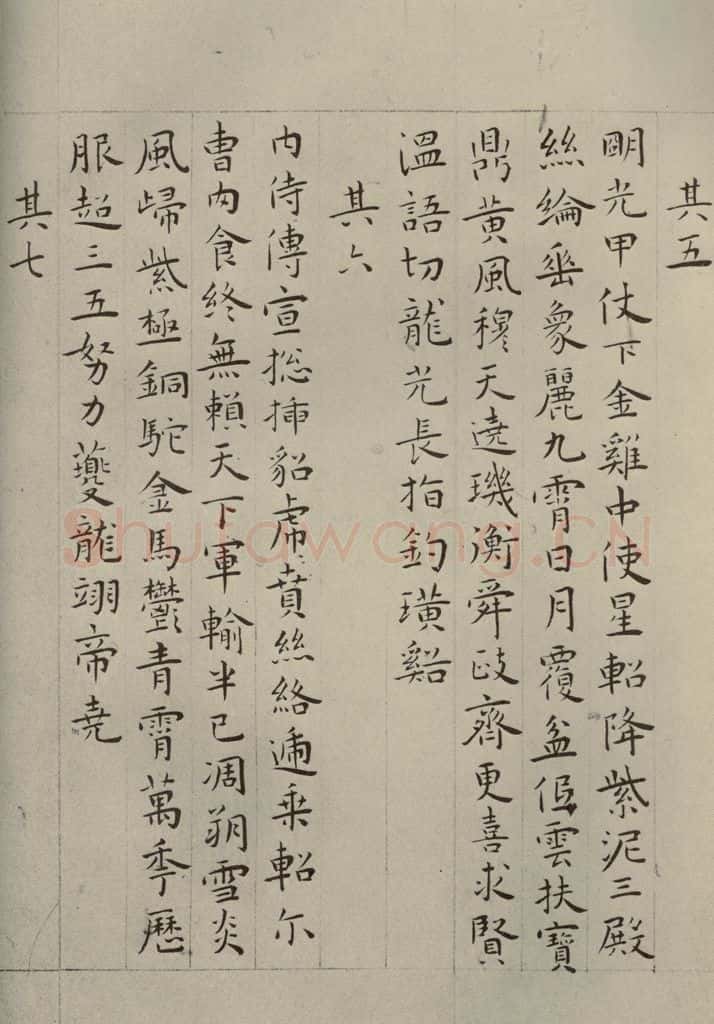 其五
明光甲仗下金雞中使星軺降紫泥三殿
絲綸垂象麗九霄日月覆盆低雲扶寶
鼎黃風穆天遶璣衡舜政齊更喜求賢
溫語切龍光長指釣璜谿
其六
內侍傳宣摠插貂虎賁絲絡遞乘軺尔
曹肉食終無賴天下軍輸半已凋朔雪炎
風歸紫極銅駝金馬鬱青霄萬秊歷
服超三五努力夔龍翊帝堯
其七
Shufawang.CN